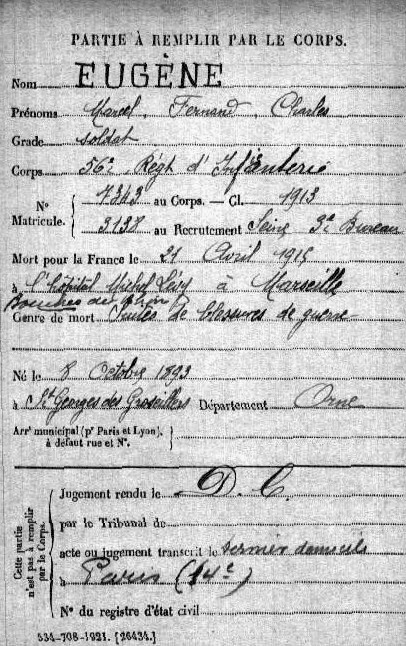 PARTIE À REMPLIR PAR LE CORPS.
Nom EUGÈNE
Prénoms Marcel, Fernand, Charles
Grade soldat
Corps 56e Régt d'Infanterie
N° Matricule. { 7343 au Corps. — Cl. 1913
3138 au Recrutement Seine 3e Bureau
Mort pour la France le 21 Avril 1915
à l'hôpital Michel Lévy à Marseille
Bouches du Rhône
Genre de mort Suites de blessures de guerre
Né le 8 Octobre 1893
à St Georges des Groseillers Département Orne
Arrt municipal (pr Paris et Lyon), à défaut rue et N°.
Cette partie n'est pas à remplir par le Corps.
Jugement rendu le D. C.
par le Tribunal de
acte ou jugement transcrit le dernier domicile
à Paris (14e)
N° du registre d'état civil
534-708-1921. [26434.]